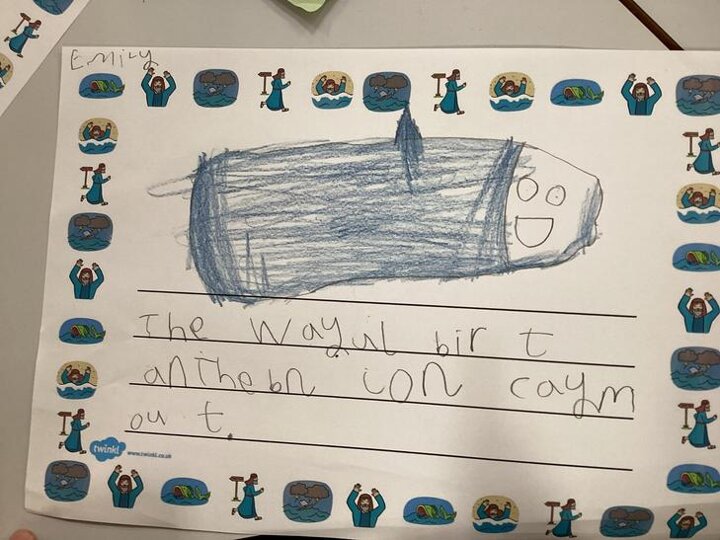 Emily
The wayul birt
anthebn ion caym
out.
twinkl
www.twinkl.co.uk